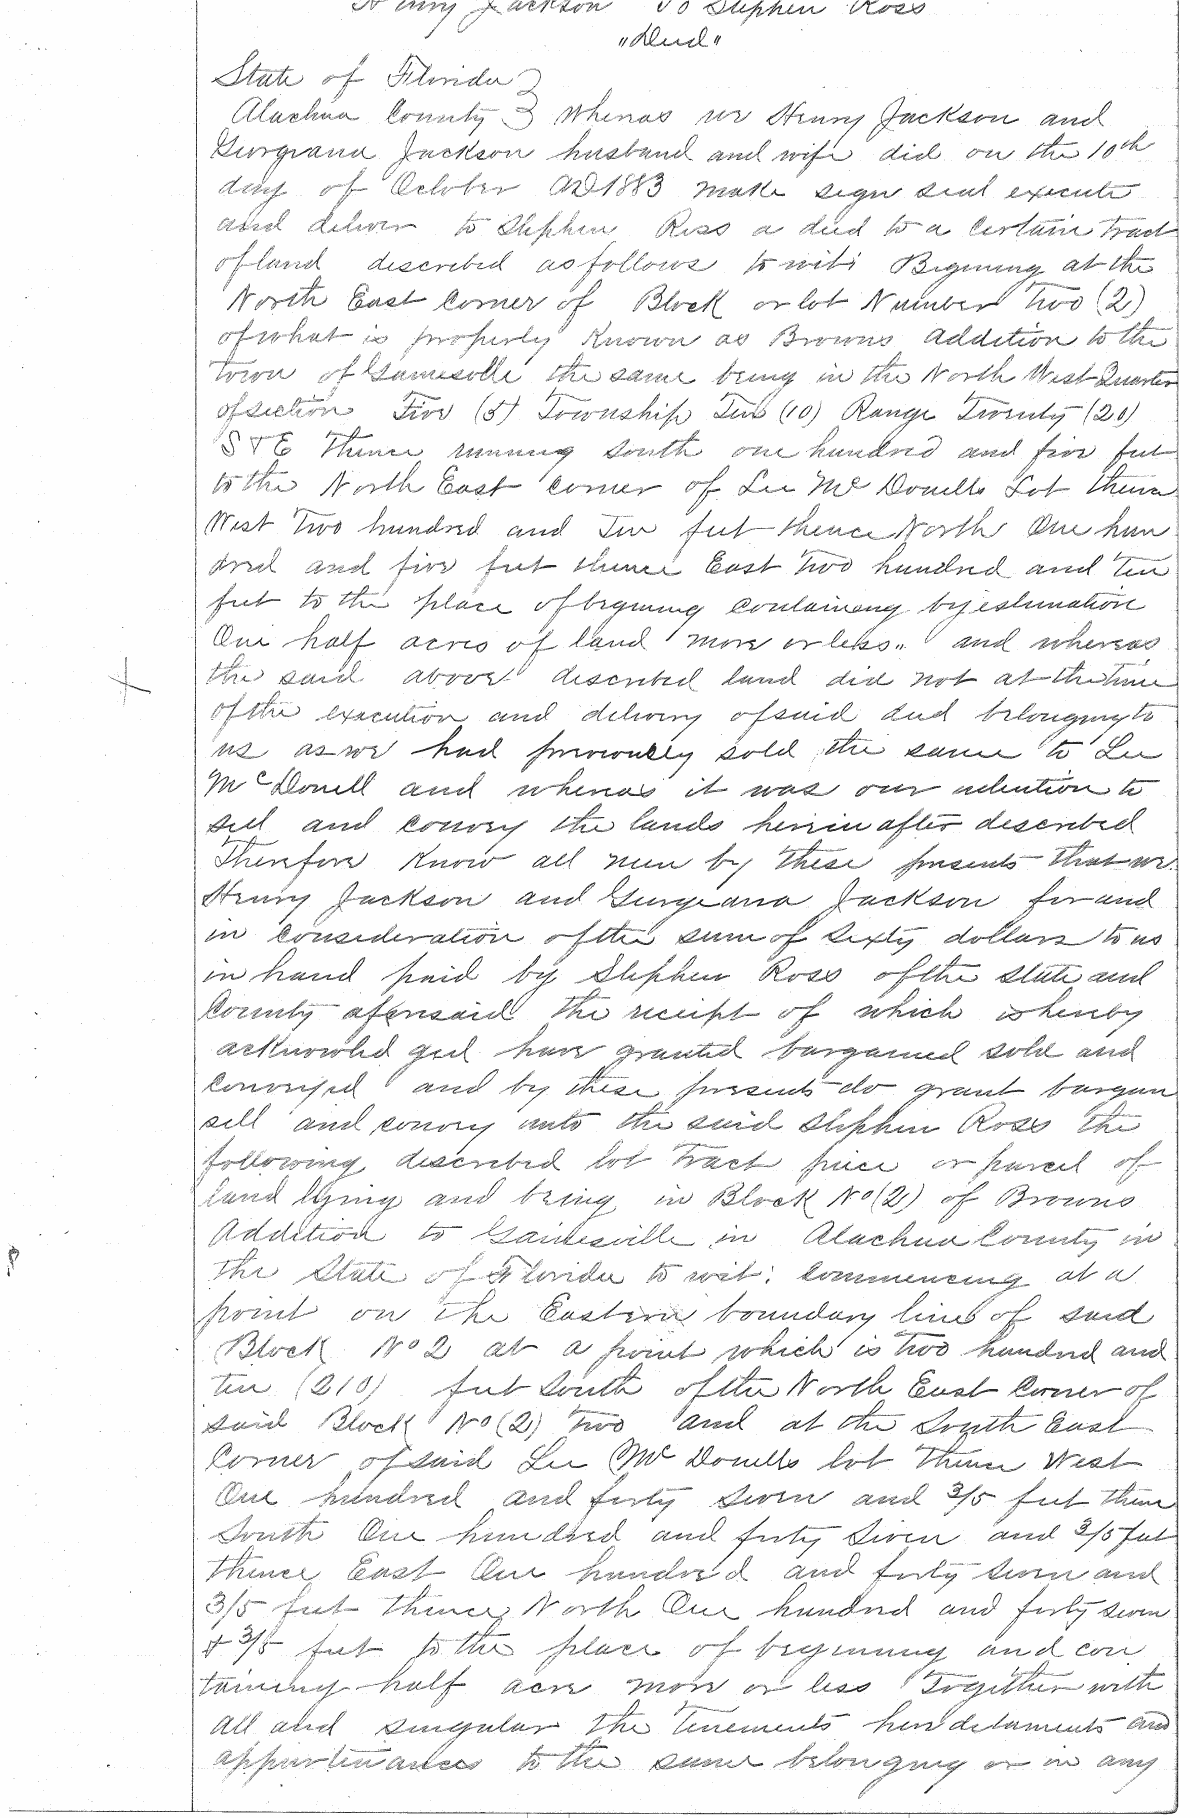 Henry Jackson To Stephen Ross
"Deed"
State of Florida }
Alachua County } Whereas we Henry Jackson and
Georgeana Jackson husband and wife did on the 10th
day of October AD 1883 make sign seal execute
and deliver to Stephen Ross a deed to a certain tract
of land described as follows to wit: Begining at the
North East Corner of Block or lot Number Two (2)
of what is properly known as Browns Addition to the
town of Gainesville the same being in the North West Quarter
of section Five (5) Township Ten (10) Range Twenty (20)
S & E Thence running South one hundred and five feet
to the North East corner of Lee McDonells Lot thence
West Two hundred and Ten feet thence North One hun
dred and five feet thence East Two hundred and Ten
feet to the place of begining containing by estimation
One half acres of land more or less.. and whereas
the said above described land did not at the time
of the execution and delivery of said deed belonging to
us as we had previously sold the same to Lee
McDonell and whereas it was our intention to
sell and convey the lands herein after described
Therefore Know all men by these presents that we
Henry Jackson and Georgeana Jackson for and
in consideration of the sum of Sixty dollars to us
in hand paid by Stephen Ross of the State and
County aforesaid the receipt of which is hereby
acknowled ged have granted bargained sold and
conveyed and by these presents do grant bargain
sell and convey unto the said Stephen Ross the
following described lot Tract piece or parcel of
land lying and being in Block No (2) of Browns
Addition to Gainesville in Alachua County in
the State of Florida to wit: Commencing at a
point on the Eastern boundary line of said
Block No 2 at a point which is Two hundred and
ten (210) feet South of the North East Corner of
said Block No (2) Two and at the South East
Corner of said Lee McDonells lot Thence West
One hundred and forty seven and 3/5 feet thence
South One hundred and forty Seven and 3/5 feet
thence East One hundred and forty seven and
3/5 feet thence North One hundred and forty seven
& 3/5 feet to the place of beginning and con
taining half acre more or less Together with
all and singular the Tenements hereditaments and
appurtenances to the same belonging or in any